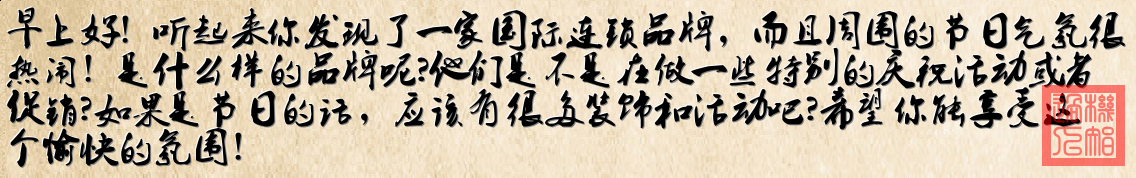 早上好！听起来你发现了一家国际连锁品牌，而且周围的节日气氛很
热闹！是什么样的品牌呢？他们是不是在做一些特别的庆祝活动或者
促销？如果是节日的话，应该有很多装饰和活动吧？希望你能享受这
个愉快的氛围！